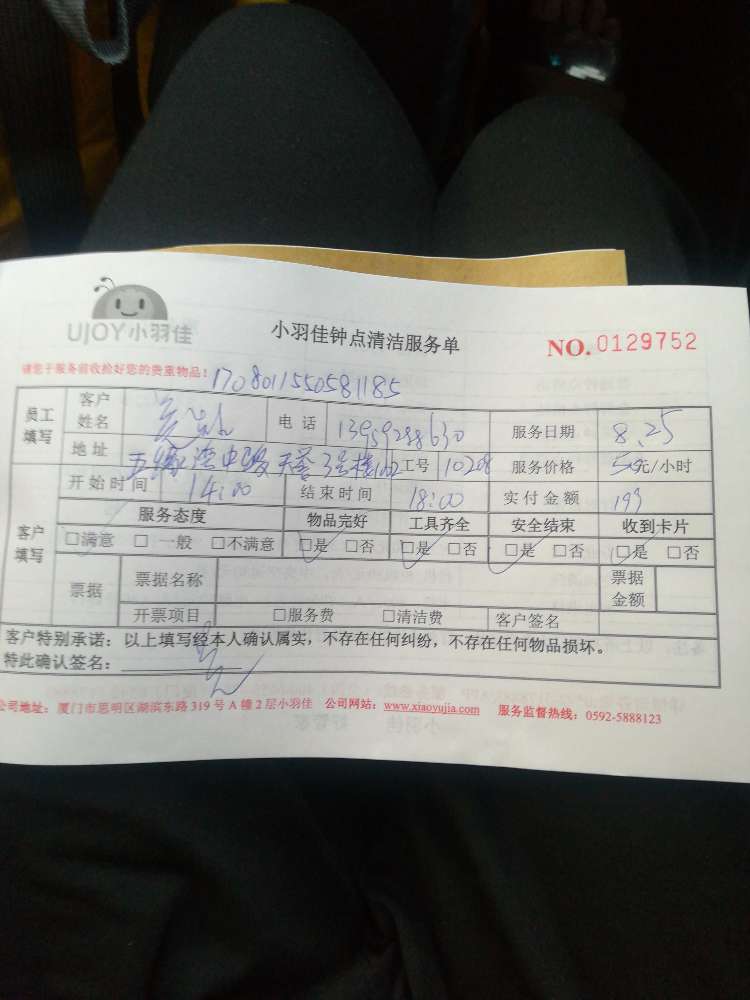 UJOY小羽佳
小羽佳钟点清洁服务单
NO. 0129752
请您于服务前收捡好您的贵重物品！
1708011550581185
员工填写 客户姓名 电话 服务日期 8.25
地址 3号楼 工号 10208 服务价格 50元/小时
开始时间 14:00 结束时间 18:00 实付金额 199
客户填写 服务态度 物品完好 工具齐全 安全结束 收到卡片
□满意 □一般 □不满意 □是 □否 □是 □否 □是 □否 □是 □否
票据 票据名称 票据金额
开票项目 □服务费 □清洁费 客户签名
客户特别承诺：以上填写经本人确认属实，不存在任何纠纷，不存在任何物品损坏。
特此确认签名：
公司地址：厦门市思明区湖滨东路 319 号 A 幢 2 层小羽佳 公司网站：www.xiaoyujia.com 服务监督热线：0592-5888123